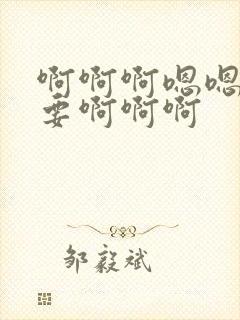 啊啊啊嗯嗯
要啊啊啊
邹毅斌